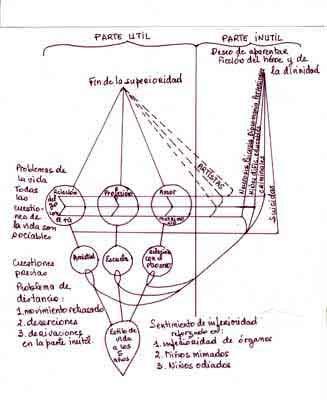 PARTE UTIL
PARTE INUTIL
Deseo de aparentar
Ficción del héroe y de
la divinidad
Fin de la superioridad
ARTISTAS
Problemas de
la vida
Todas
las
cuestio-
nes de
la vida son
sociables
Relación
del
yo
con
el tú
Profesión
Amor
matrimonio
Neurosis
Psicosis
Niños difíc. educables
Criminales
Suicidas
Cuestiones
previas
Amistad
Escuela
relación
con el
Problema de
distancia:
1. movimiento retrasado
2. deserciones
3. derivaciones
en la parte inútil.
Estilo de
vida
a los 5
años
Sentimiento de inferioridad
reforzado en:
1. inferioridad de órganos
2. Niños mimados
3. Niños odiados